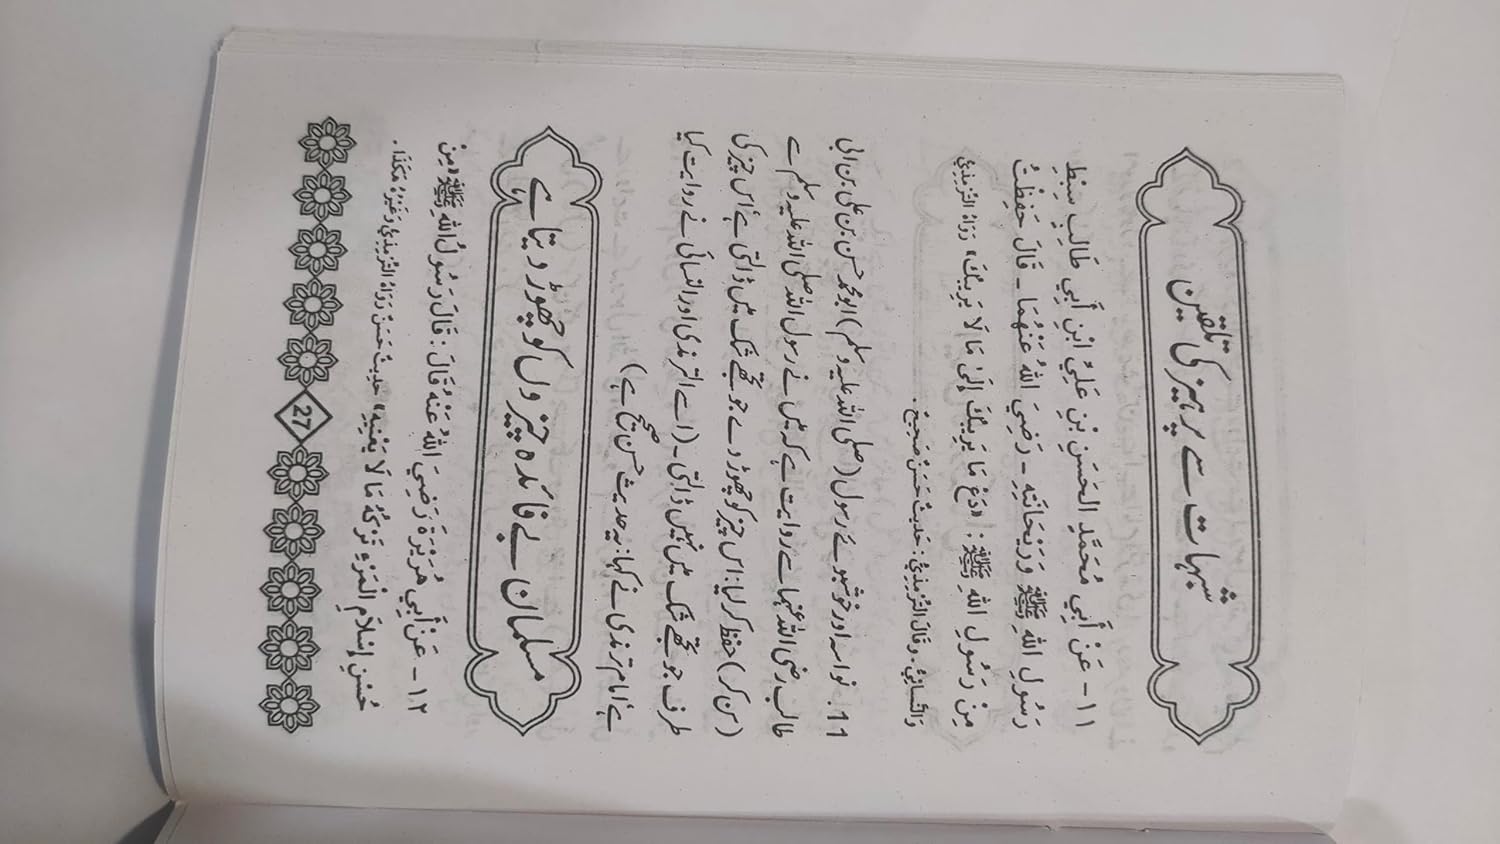 شبہات سے پرہیز کی تلقین
١١- عَنْ أَبِي مُحَمَّدٍ الْحَسَنِ بْنِ عَلِيِّ ابْنِ أَبِي طَالِبٍ سِبْطِ
رَسُولِ اللهِ ﷺ وَرَيْحَانَتِهِ - رَضِيَ اللهُ عَنْهُمَا - قَالَ حَفِظْتُ
مِنْ رَسُولِ اللهِ ﷺ : «دَعْ مَا يَرِيبُكَ إِلَىٰ مَا لَا يَرِيبُكَ» رَوَاهُ التِّرْمِذِيُّ
وَالنَّسَائِيُّ. وَقَالَ التِّرْمِذِيُّ : حَدِيثٌ حَسَنٌ صَحِيحٌ.
11. نواسہ اور خوشبوئے رسول (صلی اللہ علیہ وسلم) ابو محمد حسن بن علی بن ابی
طالب رضی اللہ عنہما سے روایت ہے کہ میں نے رسول اللہ صلی اللہ علیہ وسلم سے
(سن کر) حفظ کر لیا: اس چیز کو چھوڑ دے جو تجھے شک میں ڈالتی ہے، اس چیز کی
طرف جو تجھے شک میں نہیں ڈالتی۔ (اسے الترمذی اور النسائی نے روایت کیا
ہے، امام ترمذی نے کہا: یہ حدیث حسن صحیح ہے)
مسلمان بے فائدہ چیزوں کو چھوڑ دیتا ہے
١٢- عَنْ أَبِي هُرَيْرَةَ رَضِيَ اللهُ عَنْهُ قَالَ : قَالَ رَسُولُ اللهِ ﷺ «مِنْ
حُسْنِ إِسْلَامِ الْمَرْءِ تَرْكُهُ مَا لَا يَعْنِيهِ» حَدِيثٌ حَسَنٌ رَوَاهُ التِّرْمِذِيُّ وَغَيْرُهُ هٰكَذَا.
27